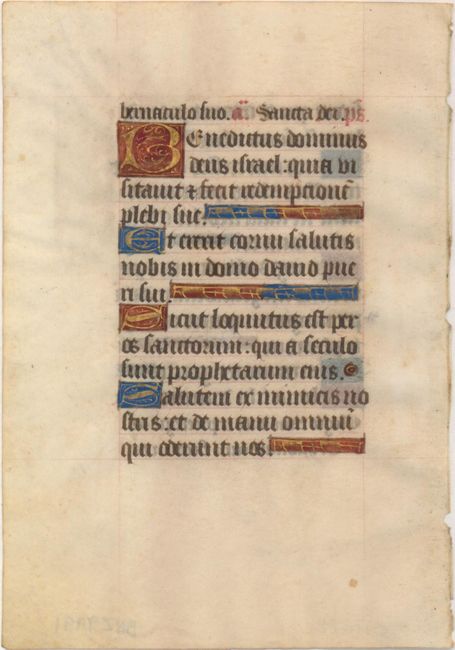 bernaculo suo. a͞. Sancta dei. ps.
Benedictus dominus
deus israel: quia vi
sitavit & fecit redemptionē
plebi sue.
Et erexit cornu salutis
nobis in domo david pue
ri sui.
Sicut loquutus est per
os sanctorum: qui a seculo
sunt prophetarum eius.
Salutem ex inimicis no
stris: et de manu omniū
qui oderunt nos.